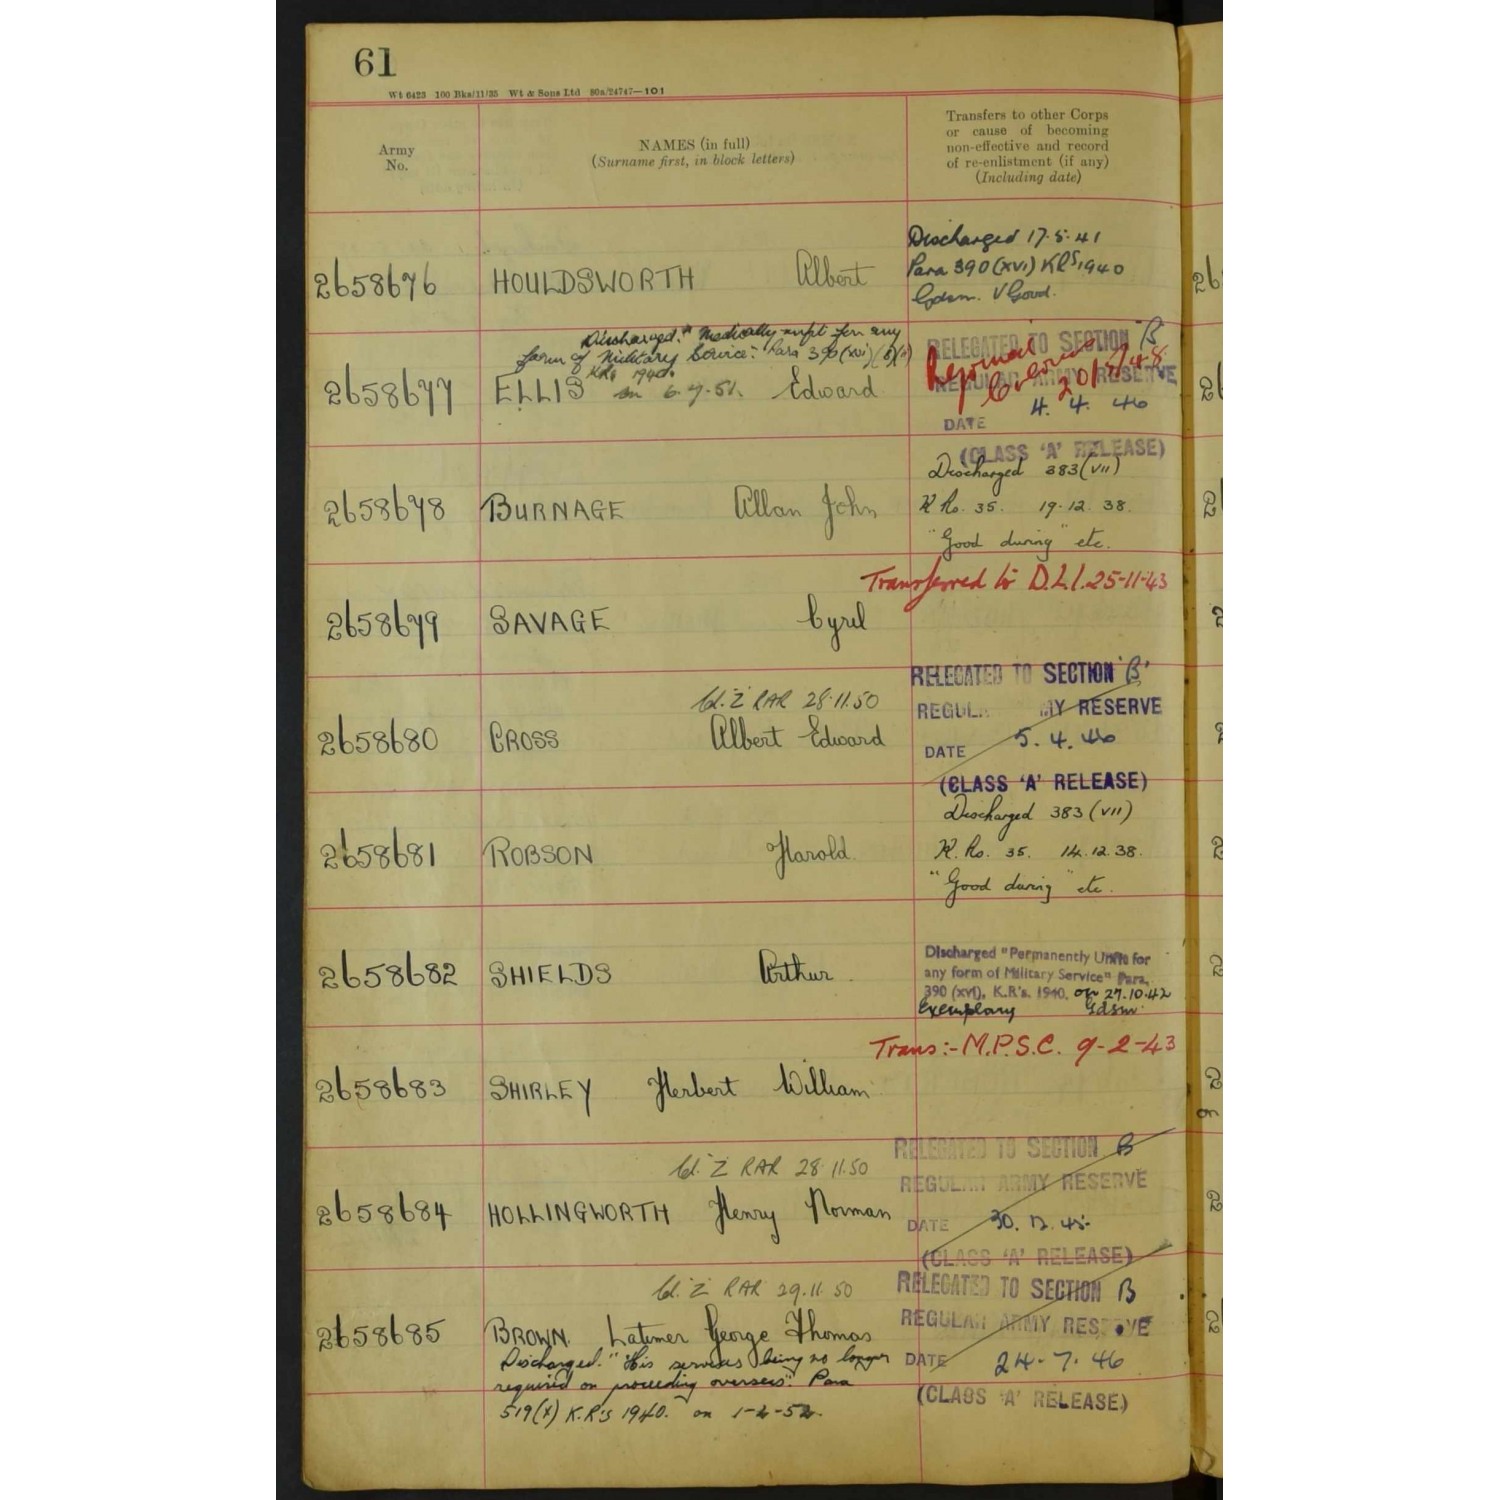 61
Wt 6423 100 Bks/11/35 Wt & Sons Ltd 80a/24747—101
Army No.
NAMES (in full)
(Surname first, in block letters)
Transfers to other Corps
or cause of becoming
non-effective and record
of re-enlistment (if any)
(Including date)
Discharged 17.5.41
Para 390 (XVI) KRs 1940
Gdsm. V Good.
2658676 HOULDSWORTH Albert
Discharged. "Medically unfit for any
form of Military Service". Para 390 (xvi)
KRs 1940.
on 6.7.51.
2658677 ELLIS Edward
RELEGATED TO SECTION B
REGULAR ARMY RESERVE
DATE 4. 4. 46
(CLASS 'A' RELEASE)
Rejoined
Colours
2658678 BURNAGE Allan John
Discharged 383 (VII)
K Rs. 35. 19.12.38.
"Good during" etc.
Transferred to D.L.I. 25-11-43
2658679 SAVAGE Cyril
Cl. Z RAR 28.11.50
2658680 CROSS Albert Edward
RELEGATED TO SECTION 'B'
REGUL MY RESERVE
DATE 5. 4. 46
(CLASS 'A' RELEASE)
2658681 ROBSON Harold
Discharged 383 (VII)
K. Rs. 35. 14.12.38.
"Good during" etc.
2658682 SHIELDS Arthur
Discharged "Permanently Unfit for
any form of Military Service" Para.
390 (xvi), K.R's. 1940. on 27.10.42
Exemplary Gdsm.
Trans:- M.P.S.C. 9-2-43
2658683 SHIRLEY Herbert William
Cl. Z RAR 28.11.50
2658684 HOLLINGWORTH Henry Norman
RELEGATED TO SECTION B
REGULAR ARMY RESERVE
DATE 30. 12. 45.
(CLASS 'A' RELEASE)
Cl. Z RAR 29.11.50
2658685 BROWN. Latimer George Thomas
Discharged. "His services being no longer
required on proceeding overseas". Para
519(X) K.R's 1940. on 1-2-52.
RELEGATED TO SECTION B
REGULAR ARMY RESERVE
DATE 24-7. 46
(CLASS 'A' RELEASE)